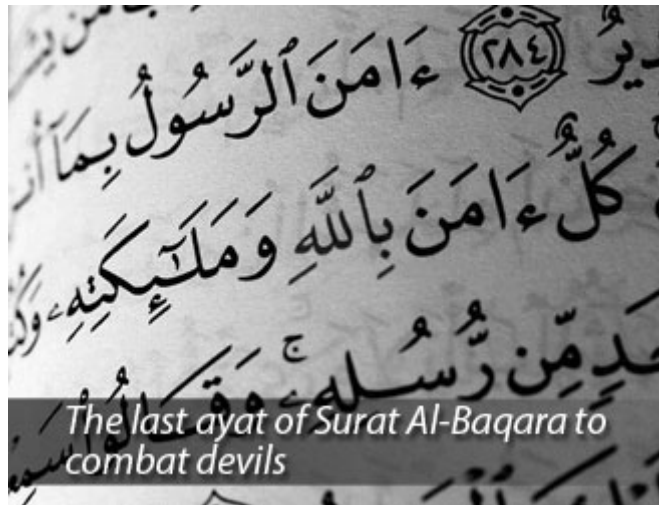 ـدِيرٌ ٢٨٤ ءَامَنَ ٱلرَّسُولُ بِمَآ
كُلٌّ ءَامَنَ بِٱللَّهِ وَمَلَـٰٓئِكَتِهِۦ
مِّن رُّسُلِهِۦ ۚ وَقَالُوا۟
The last ayat of Surat Al-Baqara to
combat devils